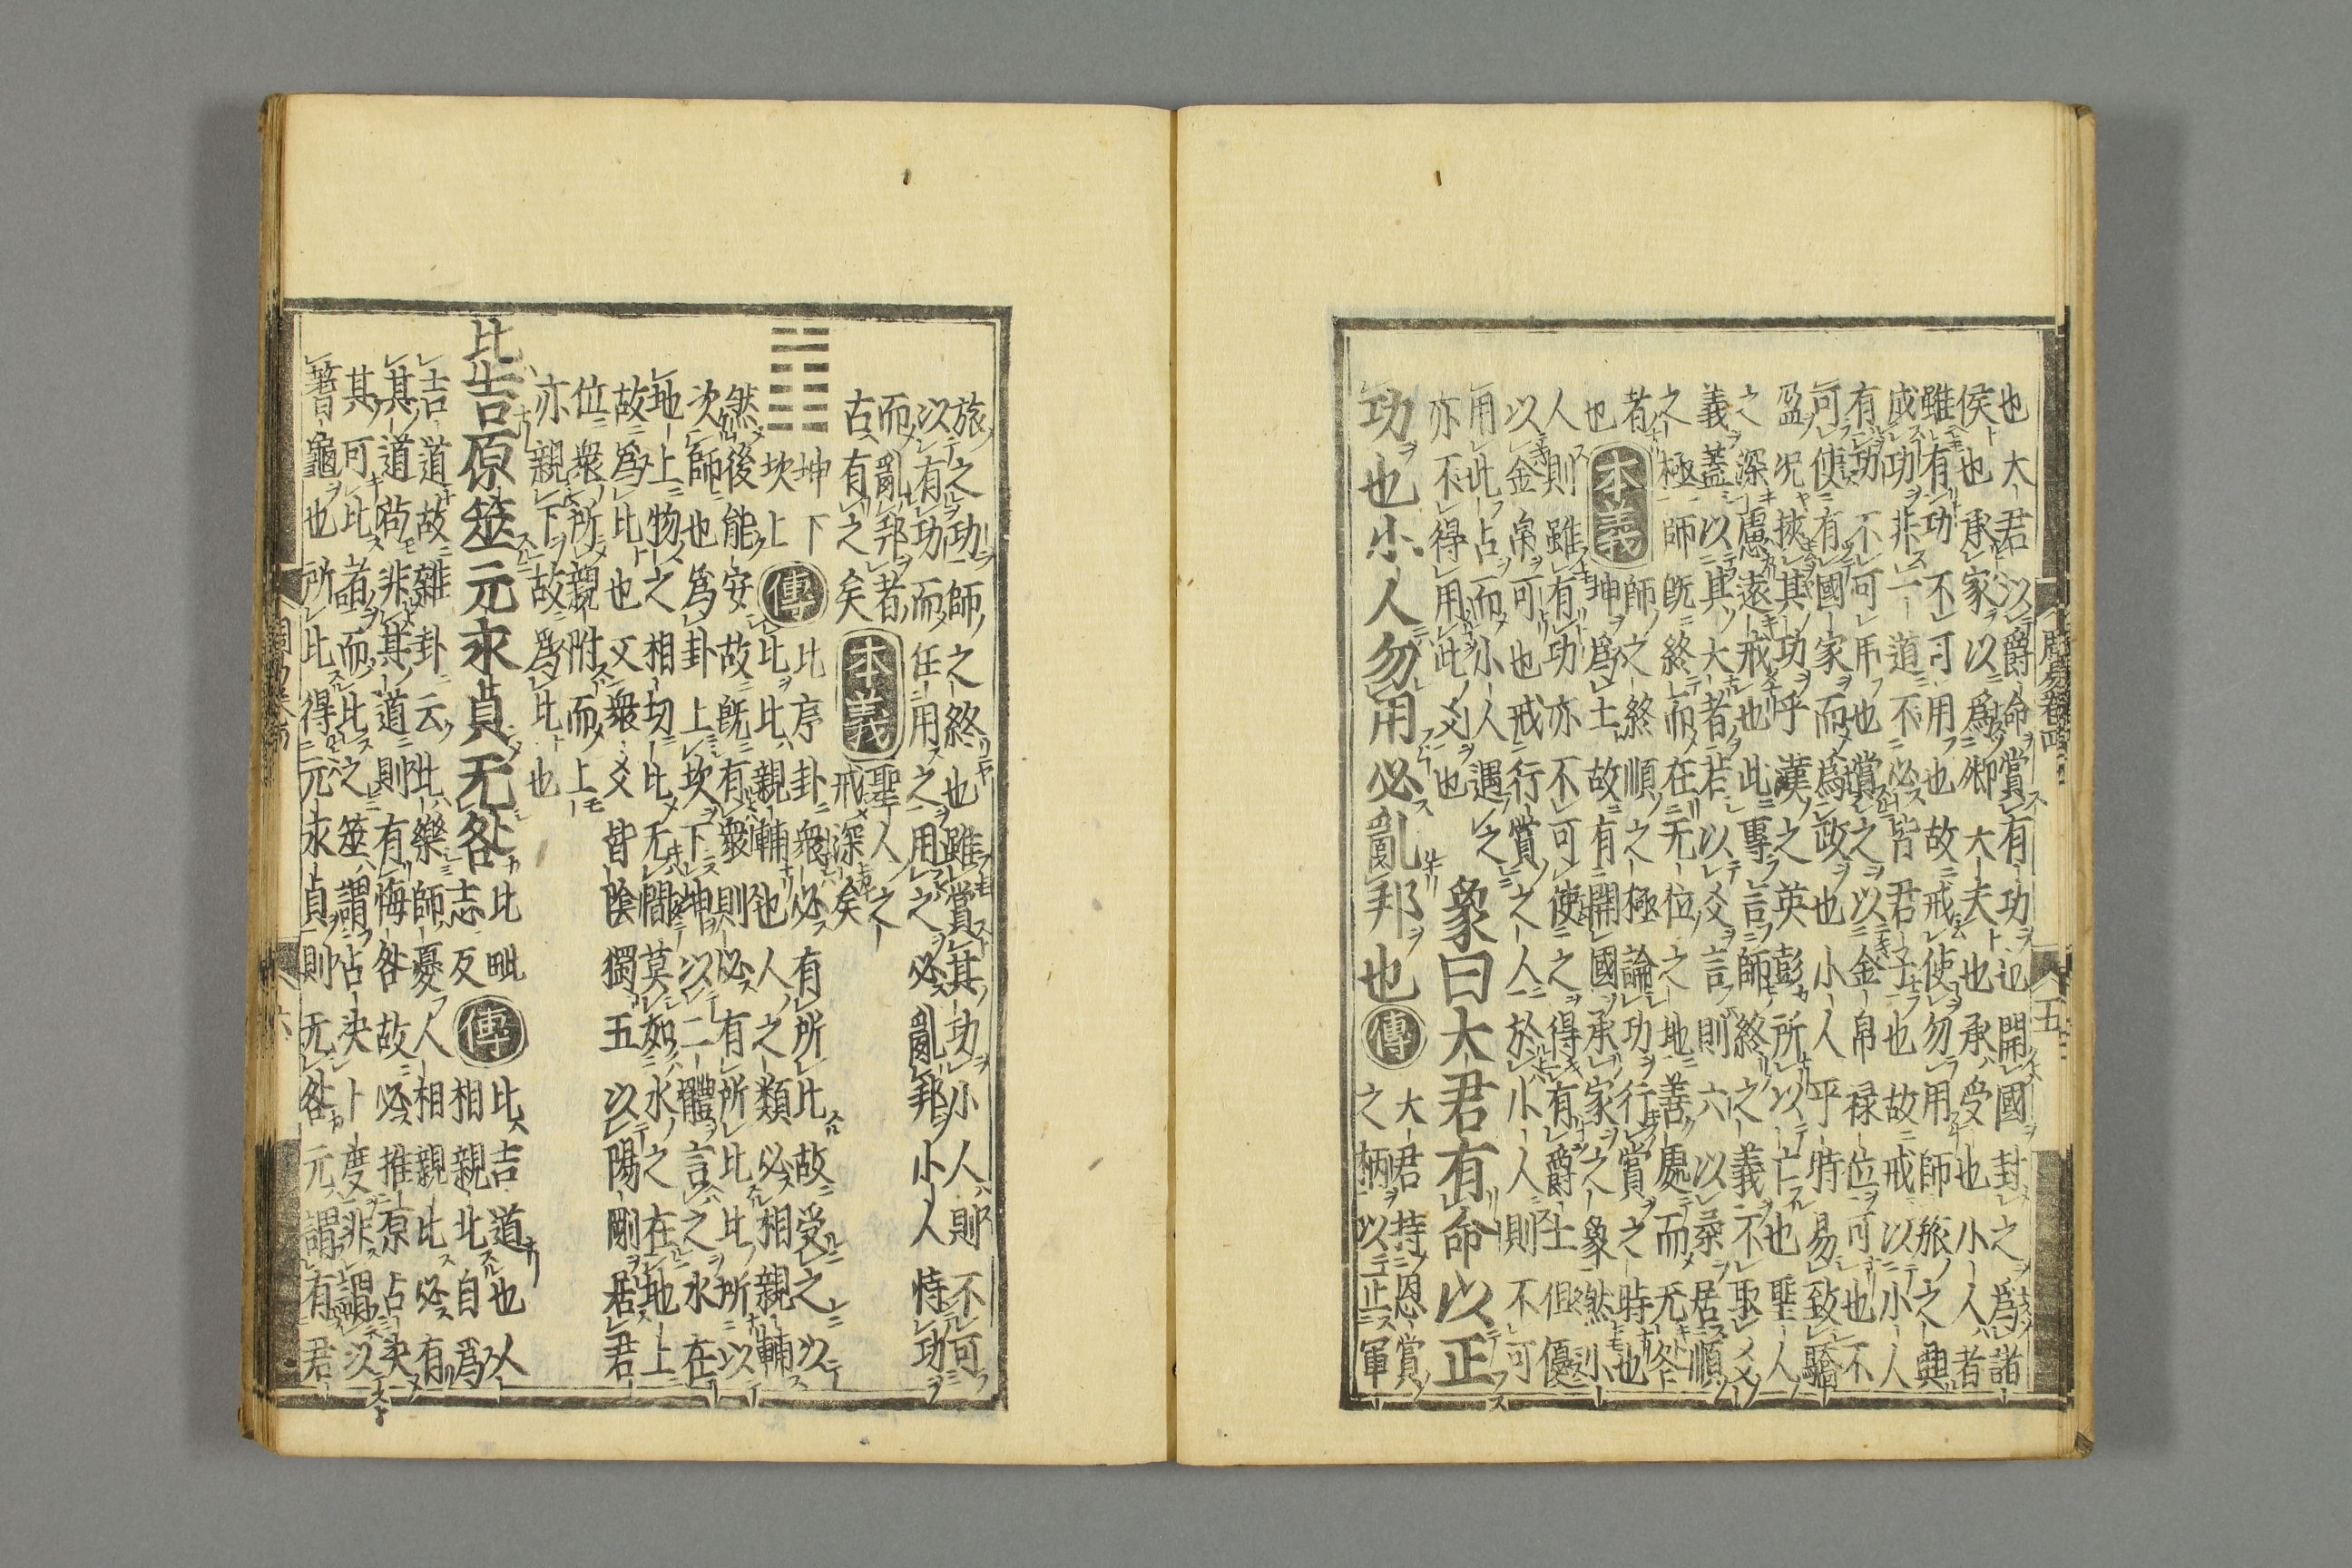 周易卷四 五
也大君以爵命賞有功也開國封之爲諸
侯也承家以爲卿大夫也承受也小人者
雖有功不可用也故戒使勿用師旅之興
成功非一道不必皆君子也故戒以小人
有功不可用也賞之以金帛祿位可也不
可使有國家而爲政也小人平時易致驕
盈况挾其功乎漢之英彭所以亡也聖人
之深慮遠戒也此專言師終之義不取爻
義蓋以其大者若以爻言則六以柔居順
之極師旣終而在无位之地善處而无咎
者也 本義 師之終順之極論功行賞之時也
坤爲土故有開國承家之象然小
人則雖有功亦不可使之得有爵土但優
以金帛可也戒行賞之人於小人則不可
用此占而小人遇之
亦不得用此爻也
象曰大君有命以正
功也小人勿用必亂邦也 傳 大君持恩賞
之柄以正軍
旅之功師之終也雖賞其功小人則不可
以有功而任用之用之必亂邦小人恃功
而亂邦者古有之矣 本義 聖人之
戒深矣
坤下坎上 傳 比序卦衆必有所比故受之以
比比親輔也人之類必相親輔
然後能安故旣有衆則必有所比比所以
次師也爲卦上坎下坤以二體言之水在
地上物之相切比无間莫如水之在地上
故爲比也又衆爻皆陰獨五以陽剛居君
位衆所親附而上
亦親下故爲比也
比吉原筮元永貞无咎 比毗志反 傳 比吉道也人
相親比自爲
吉道故雜卦云比樂師憂人相親比必有
其道苟非其道則有悔咎故必推原占決
其可比者而比之筮謂占決卜度非謂以
蓍龜也所比得元永貞則无咎元謂有君